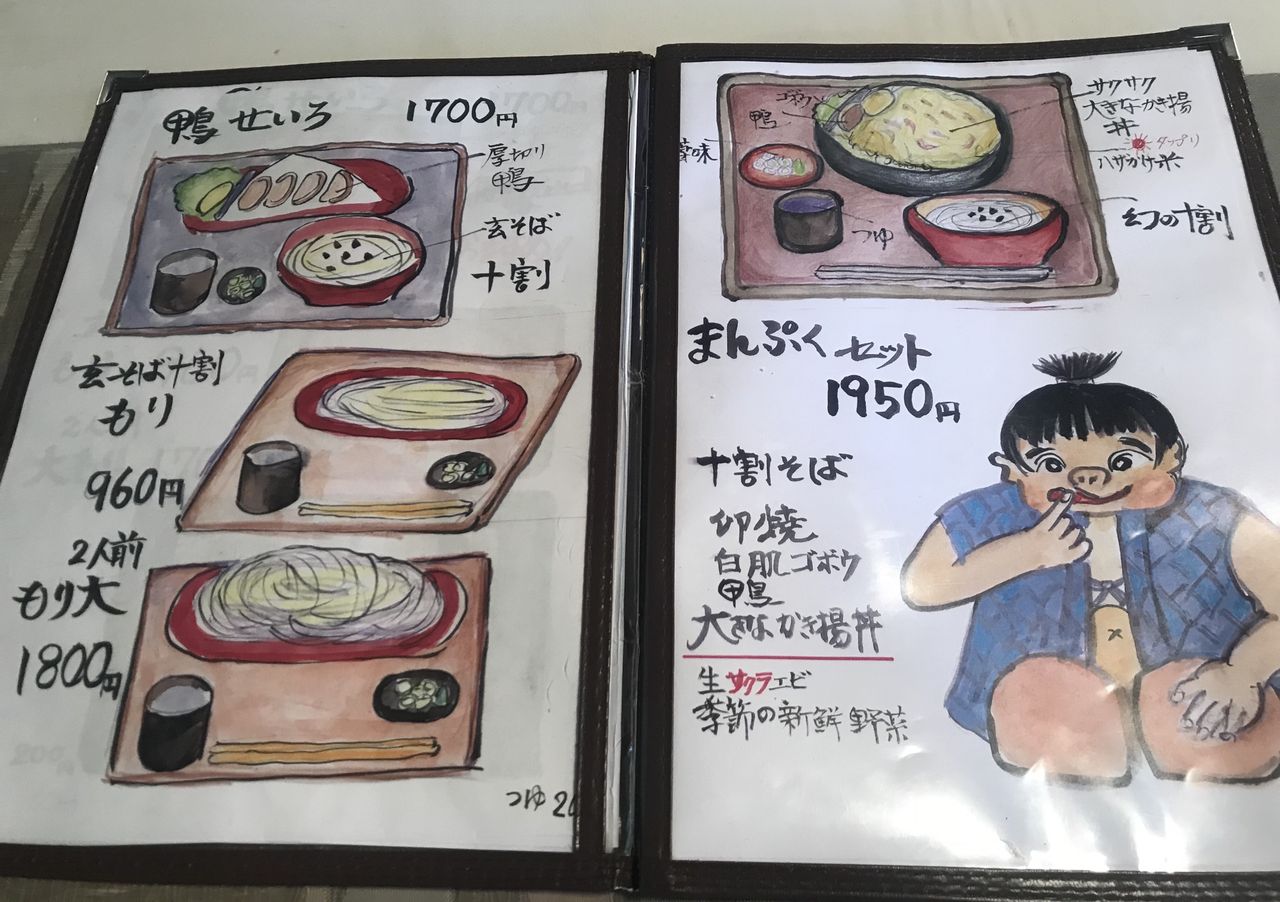 鴨せいろ 1700円
厚切り
鴨
玄そば
十割
玄そば十割
もり
960円
2人前
もり大
1800円
つゆ
ゴボウ
鴨
薬味
つゆ
サクサク
大きなかき揚
丼
タップリ
ハザかけ米
幻の十割
まんぷくセット
1950円
十割そば
卵焼
白肌ゴボウ
鴨
大きなかき揚丼
生サクラエビ
季節の新鮮野菜